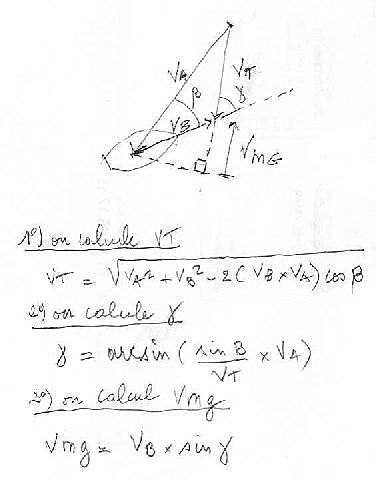 VA
VT
β
γ
VB
VMG
1°) on calcule VT
VT = √VA² + VB² - 2 ( VB × VA) cos β
2°) on calcule γ
γ = arcsin ( sin B / VT × VA)
3°) on calcul Vmg
Vmg = VB × sin γ